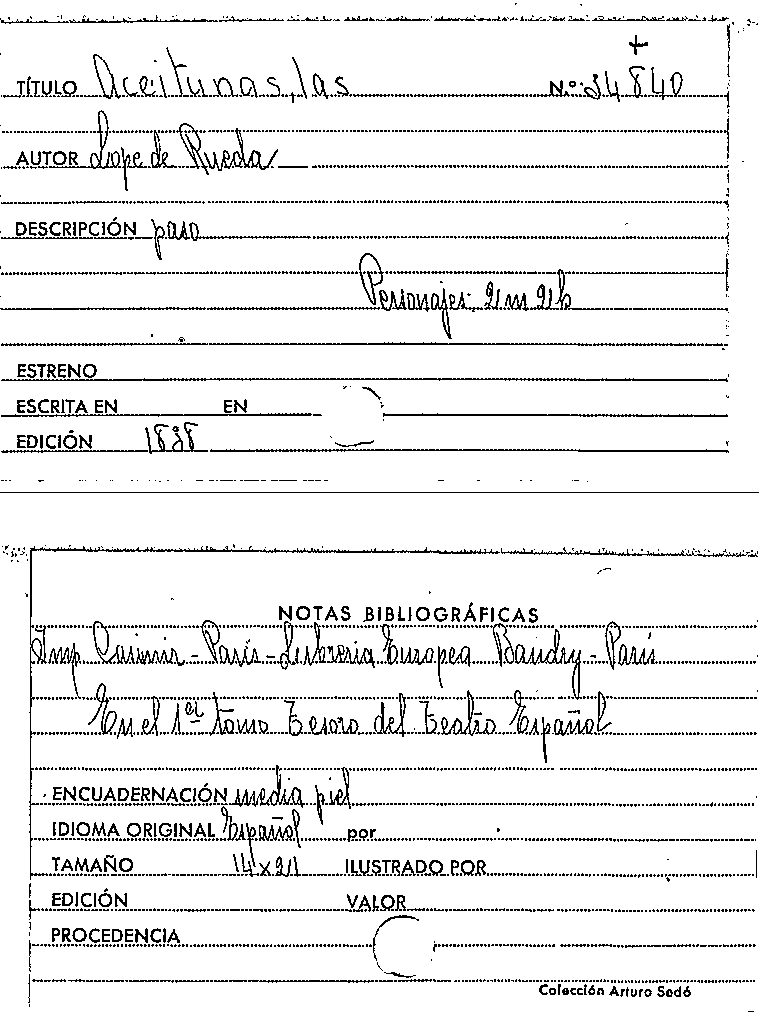 +
TÍTULO Aceitunas, las N.º: 34840
AUTOR Lope de Rueda
DESCRIPCIÓN paso
Personajes: 2 m 2 h
ESTRENO
ESCRITA EN EN
EDICIÓN 1838
NOTAS BIBLIOGRÁFICAS
Imp Casimir - París - Librería Europea Baudry - París
En el 1er tomo Tesoro del Teatro Español
ENCUADERNACIÓN media piel
IDIOMA ORIGINAL Español por
TAMAÑO 14 x 21 ILUSTRADO POR
EDICIÓN VALOR
PROCEDENCIA
Colección Arturo Sedó